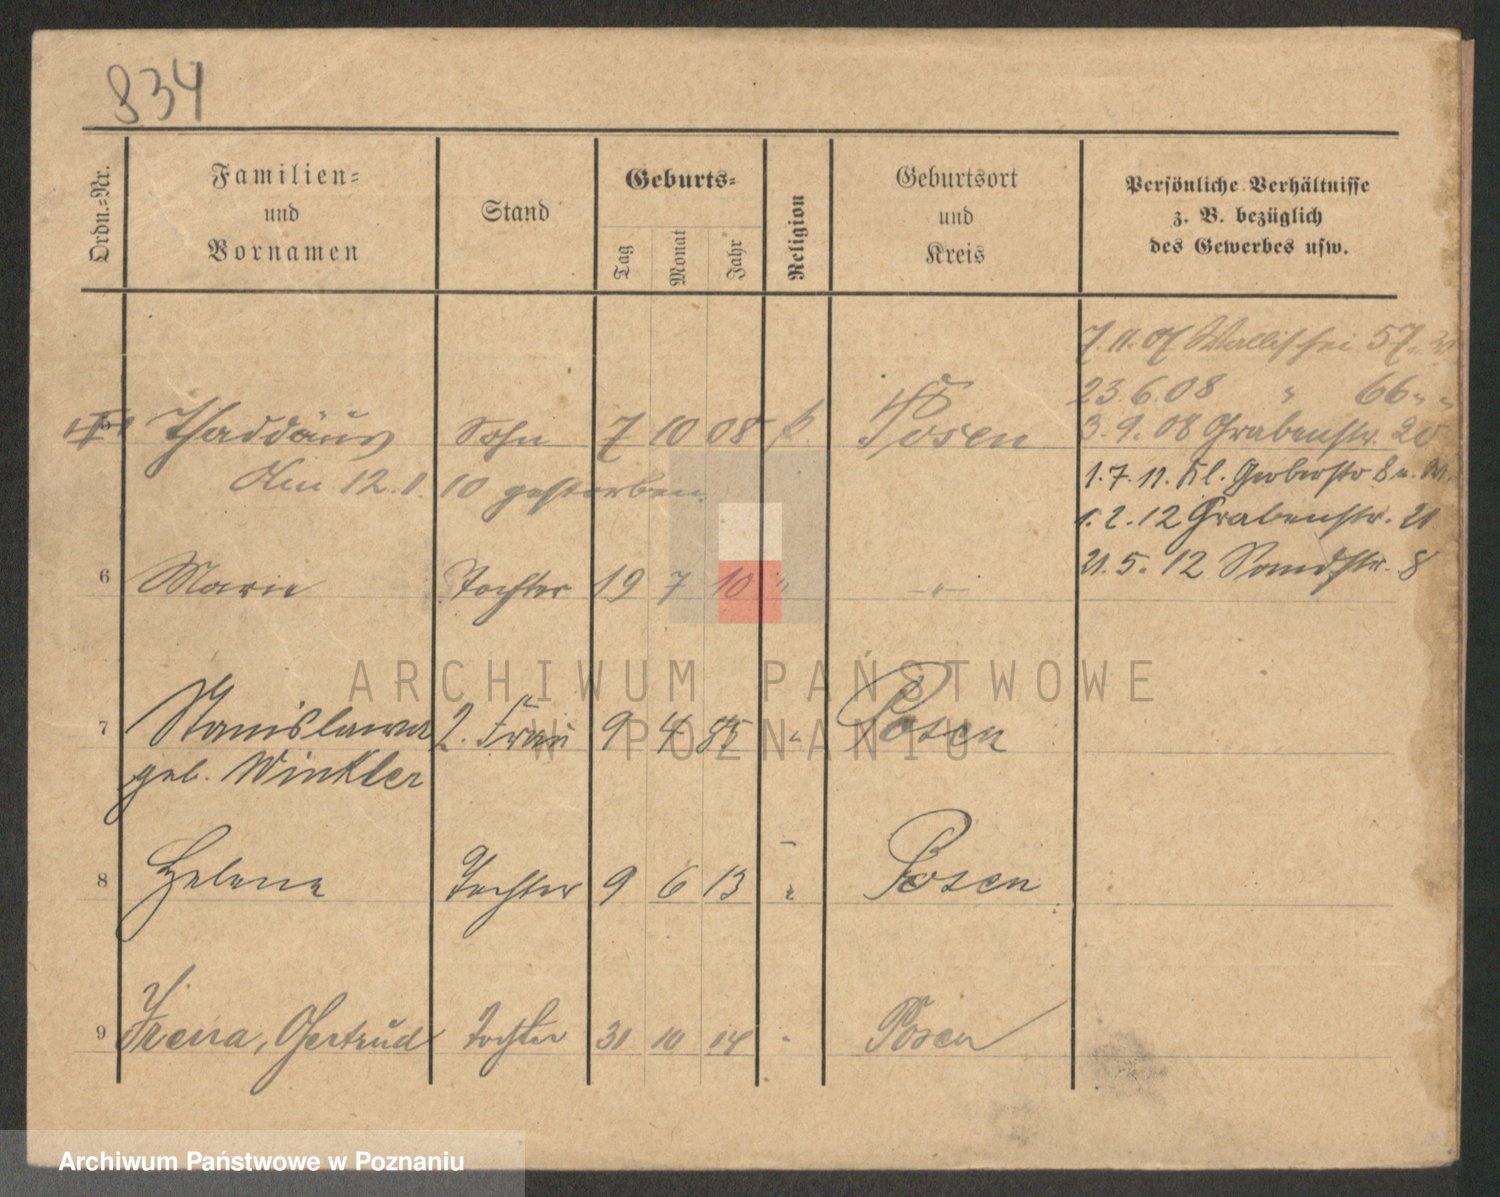 834
Ordn.=Nr.
Familien=
und
Vornamen
Stand
Geburts=
Tag
Monat
Jahr
Religion
Geburtsort
und
Kreis
Persönliche Verhältnisse
z. B. bezüglich
des Gewerbes usw.
7.11.07 Wallischei 57
23.6.08 " 66
5 Thaddäus Sohn 7 10 08 k. Posen
3.9.08 Grabenstr. 20
Am 12.1.10 gestorben.
1.7.11. Kl. Gerberstr 8
1.2.12 Grabenstr. 21
6 Marie Tochter 19 7 10 " -"-
21.5.12 Sandstr. 8
ARCHIWUM PAŃSTWOWE
W POZNANIU
7 Stanislawa 2. Frau 9 4 85 " Posen
geb. Winkler
8 Helene Tochter 9 6 13 Posen
9 Irena, Gertrud Tochter 31 10 14 " Posen
Archiwum Państwowe w Poznaniu